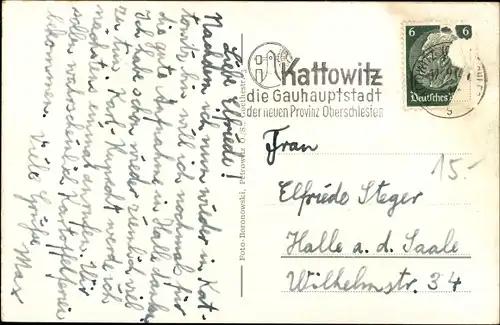 Liebe Elfriede!
Nachdem ich nun wieder in Kat-
towitz bin will ich nochmals für
die gute Aufnahme in Halle danken.
Ich habe schon wieder ziemlich viel
zu tun. Nach werde ich
nächstens einmal anrufen. Wir
sollen wahrscheinlich Kartoffelferien
bekommen. Viele Grüße
Max
Foto-Boronowski, Petrowitz O./S.
Kattowitz
die Gauhauptstadt
der neuen Provinz Oberschlesien
6 6
Deutsches
Frau
15.-
Elfriede Steger
Halle a. d. Saale
Wilhelmstr. 34